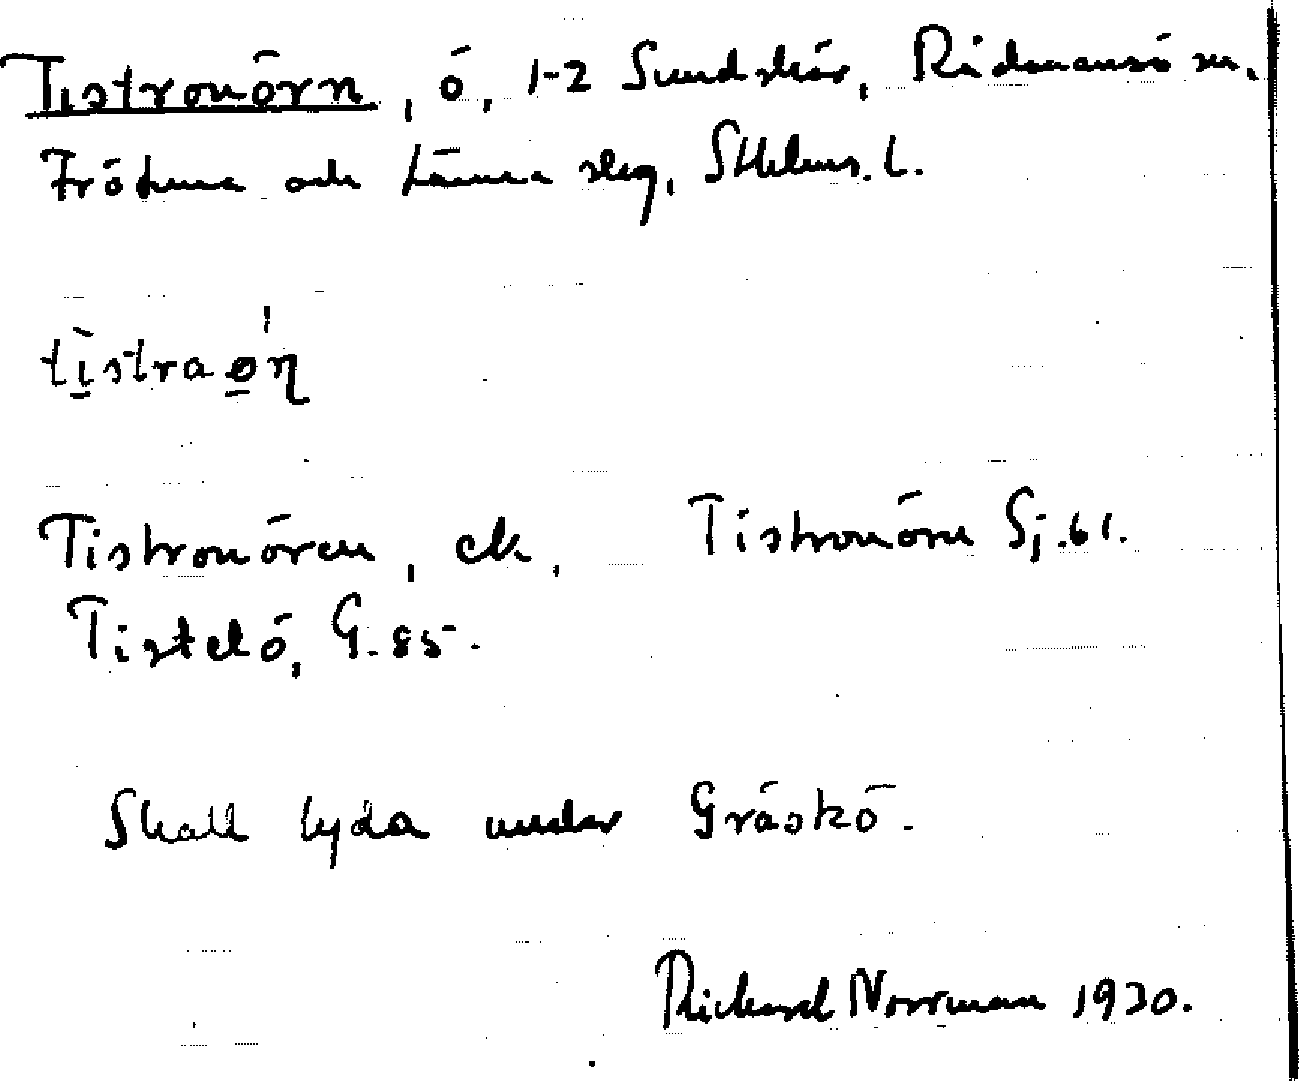 Tistronörn, ö, 1-2 Sundskär, Rådmansö sn,
Frötuna och Länna sklg, Sthlms. L.
tìstraǿn
Tistronören, ek, Tistronörn Sj. 61.
Tistelö, G. 85.
Skall lyda under Gräskö.
Rickard Norrman 1930.